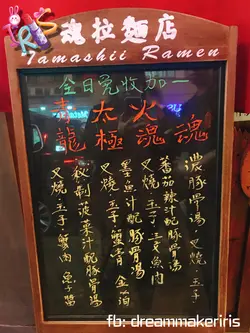 IRiS
魂拉麵店
Tamashii Ramen
全日免收加一
魂
火魂
太極
青龍
濃豚骨湯
叉燒·玉子
蕃茄辣汁配豚骨湯
叉燒·玉子·三文魚肉
墨魚汁配豚骨湯
叉燒·玉子·蟹膏·金箔
秘制菠菜汁配豚骨湯
叉燒·玉子·蟹肉·魚子醬
fb: dreammakeriris